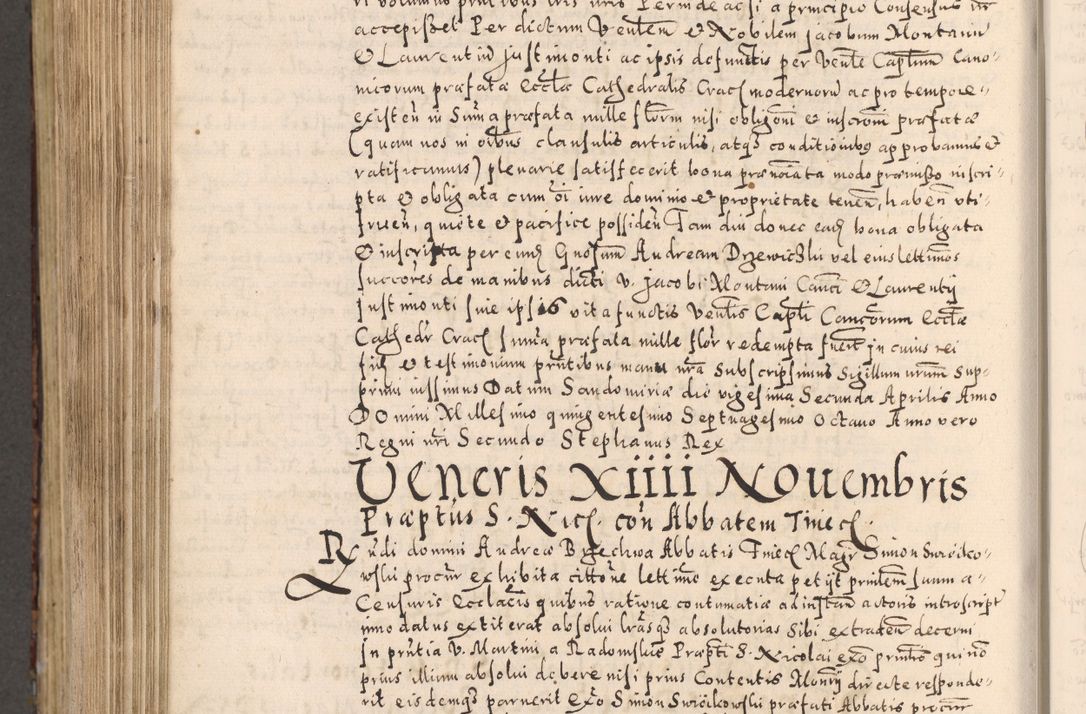 ri volumus prntibus lris nris Perinde ac si a principio Consensus nr
accepisset Per dictum Venlem et Nobilem Jacobum Montanu
et Laurentiu Justimonti ac ipsis defunctis per Venle Captlum Cano-
nicorum præfatæ Ecclæ Cathedralis Crac modernoru ac pro tempore
existen in Suma præfata mille florm nisi obligoni et inscroni præfatæ
(quam nos in oibus clausulis articulis, atqz conditioibus approbamus et
ratificamus) plenarie satisfecerit bona prænoiata modo præmisso inscri-
pta et obligata cum oi iure dominio et proprietate tenen, haben uti-
fruen, quiete et pacifice possiden Tam diu donec eade bona obligata
et inscripta per eund Gnosum Andream Drzewiczki vel eius lettimos
succores de manibus dicti v. Jacobi Montani Canci et Laurentij
Justimonti sive ipsis vita functis Venlis Captli Cancorum Ecclæ
Cathedr Crac suma præfata mille flor redempta fuerit Jn cuius rei
fidem et testimonium prntibus manu nra Subscripsimus Sigillum nrum Sup-
primi iussimus Datum Sandomiriæ die vigesima Secunda Aprilis Anno
Domini Millesimo quingentesimo Septuagesimo Octavo Anno vero
Regni nri Secundo Stephanus Rex
Veneris XIIII Novembris
Præptus S. Nich. con Abbatem Tinec.
Rndi domini Andreæ Brzechwa Abbatis Tinec Magr Simon Swioiko-
wski procur exhibita cittone lettime executa petijt prindem suum a
Censuris Ecclacis quibus ratione contumatiæ ad instan actoris introscript
imo datus extiterat absolui lrasqz absolutorias Sibi extraden decerni
Jn prntia v. Martini a Radomsko Præpti S. Nicolai exo prmbo qui no
prius illum absolui debere nisi prius Contentis Monrij directe responde-
rit eisdemqz paruerit Exo Simon Swioikowski præfati Abbatis procur